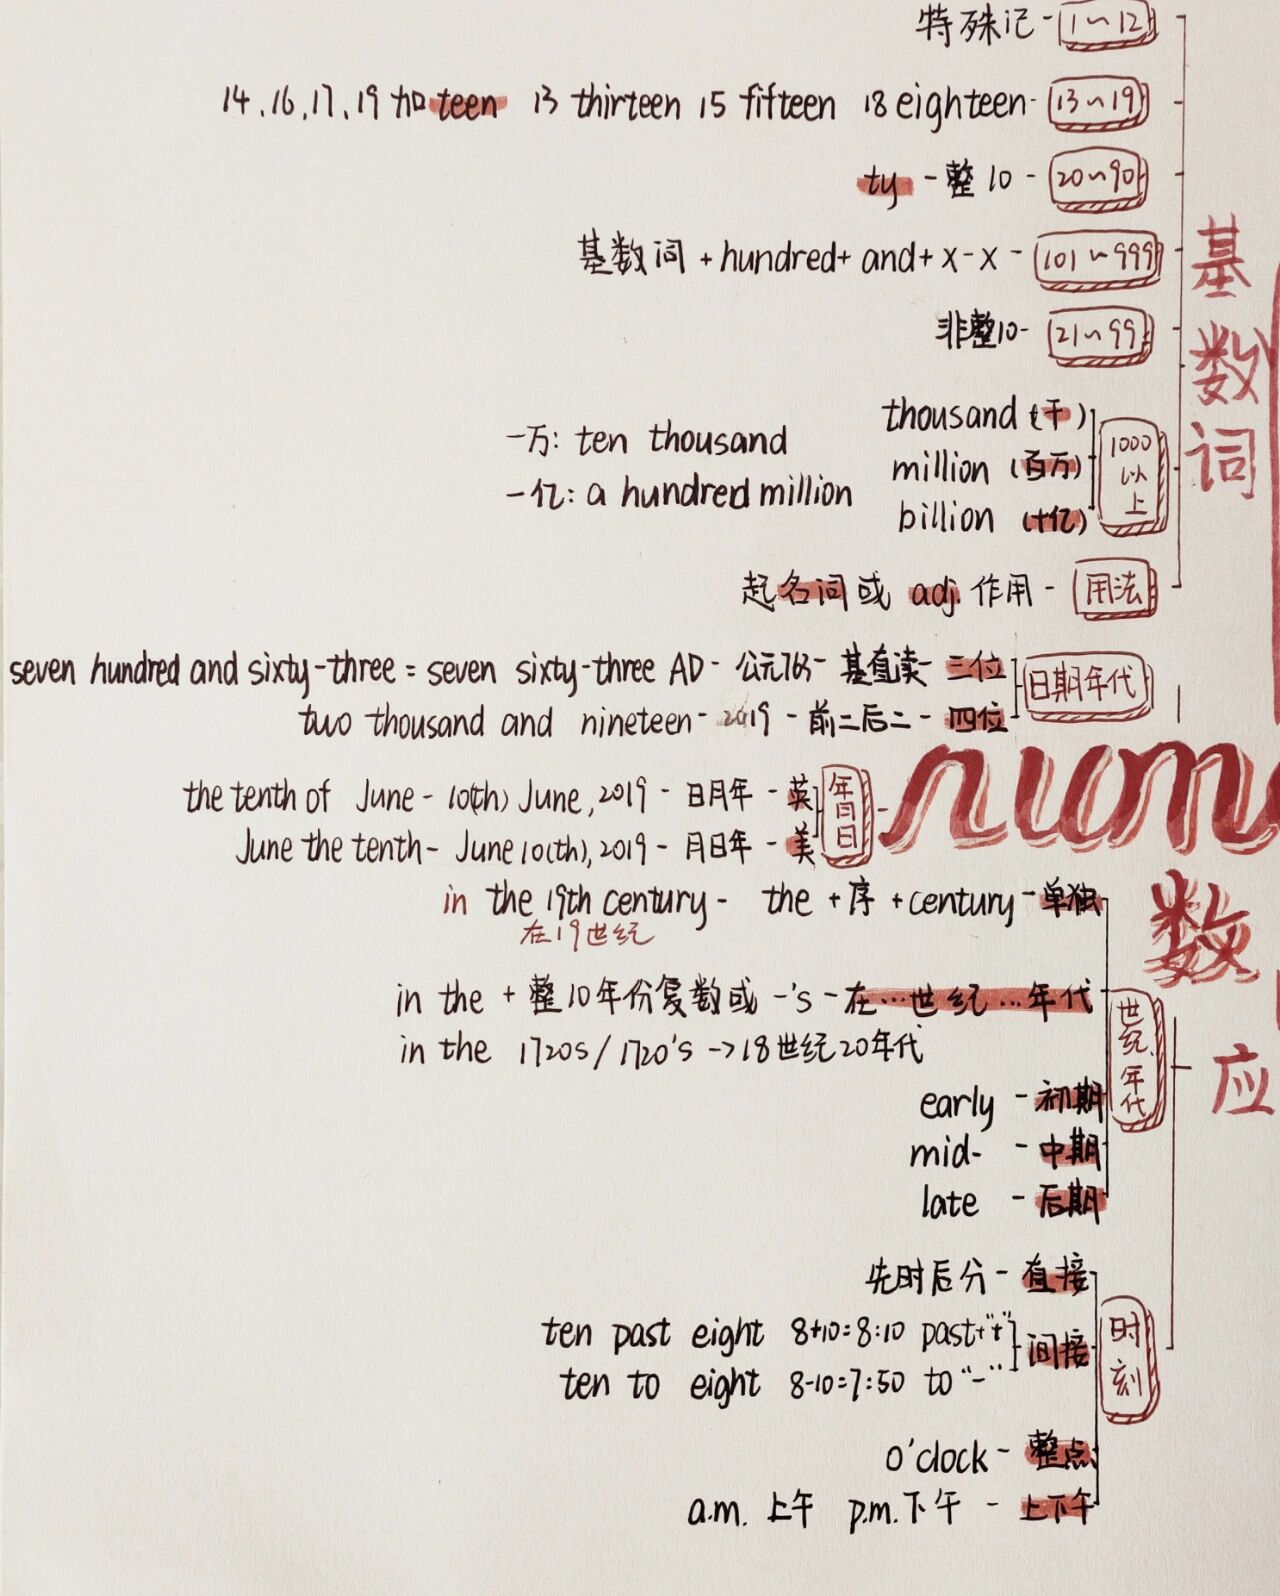 特殊记-1~12
14、16、17、19加teen 13 thirteen 15 fifteen 18 eighteen-13~19
ty-整10-20~90
基数词+hundred+and+x-x-101~999
非整10-21~99
基数词
thousand(千)
一万: ten thousand
million(百万)
一亿: a hundred million
billion(十亿)
1000以上
起名词或adj.作用-用法
seven hundred and sixty-three = seven sixty-three AD-公元763-基直读-三位
日期年代
two thousand and nineteen-2019-前二后二-四位
num
the tenth of June-10(th) June,2019-日月年-英
年月日
June the tenth-June 10(th),2019-月日年-美
数
in the 19th century-the+序+century-单独
在19世纪
in the+整10年份复数或-'s-在…世纪…年代
世纪、年代
in the 1720s/1720's→18世纪20年代
应
early-初期
mid--中期
late-后期
先时后分-直接
ten past eight 8+10=8:10 past"+"
间接
时刻
ten to eight 8-10=7:50 to"-"
o'clock-整点
a.m.上午 p.m.下午-上下午